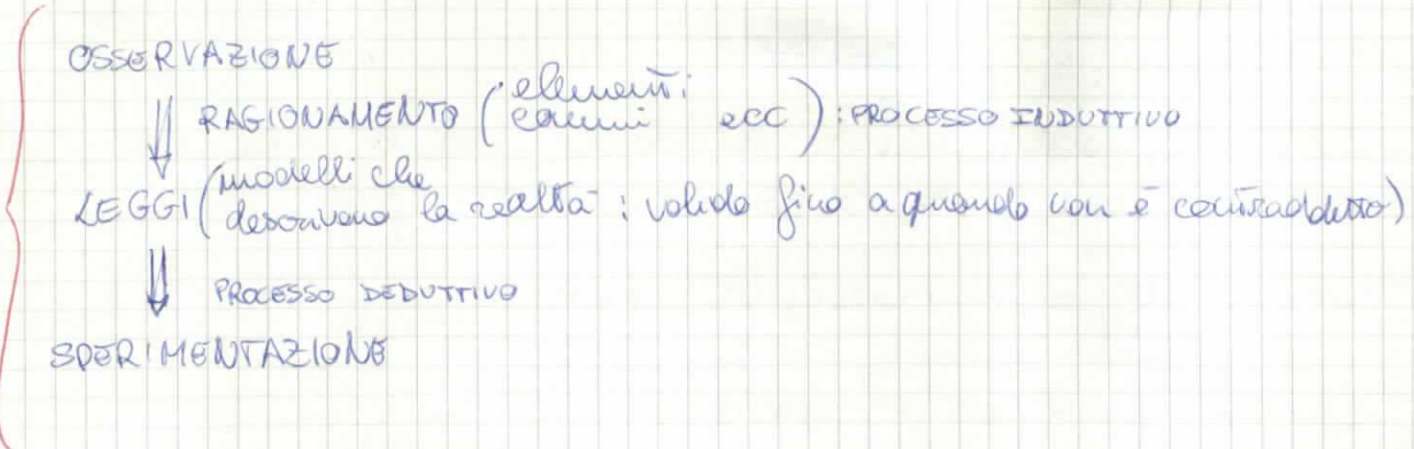 OSSERVAZIONE
RAGIONAMENTO (elementi comuni ecc) : PROCESSO INDUTTIVO
LEGGI (modelli che descrivono la realtà : valido fino a quando non è contraddetto)
PROCESSO DEDUTTIVO
SPERIMENTAZIONE